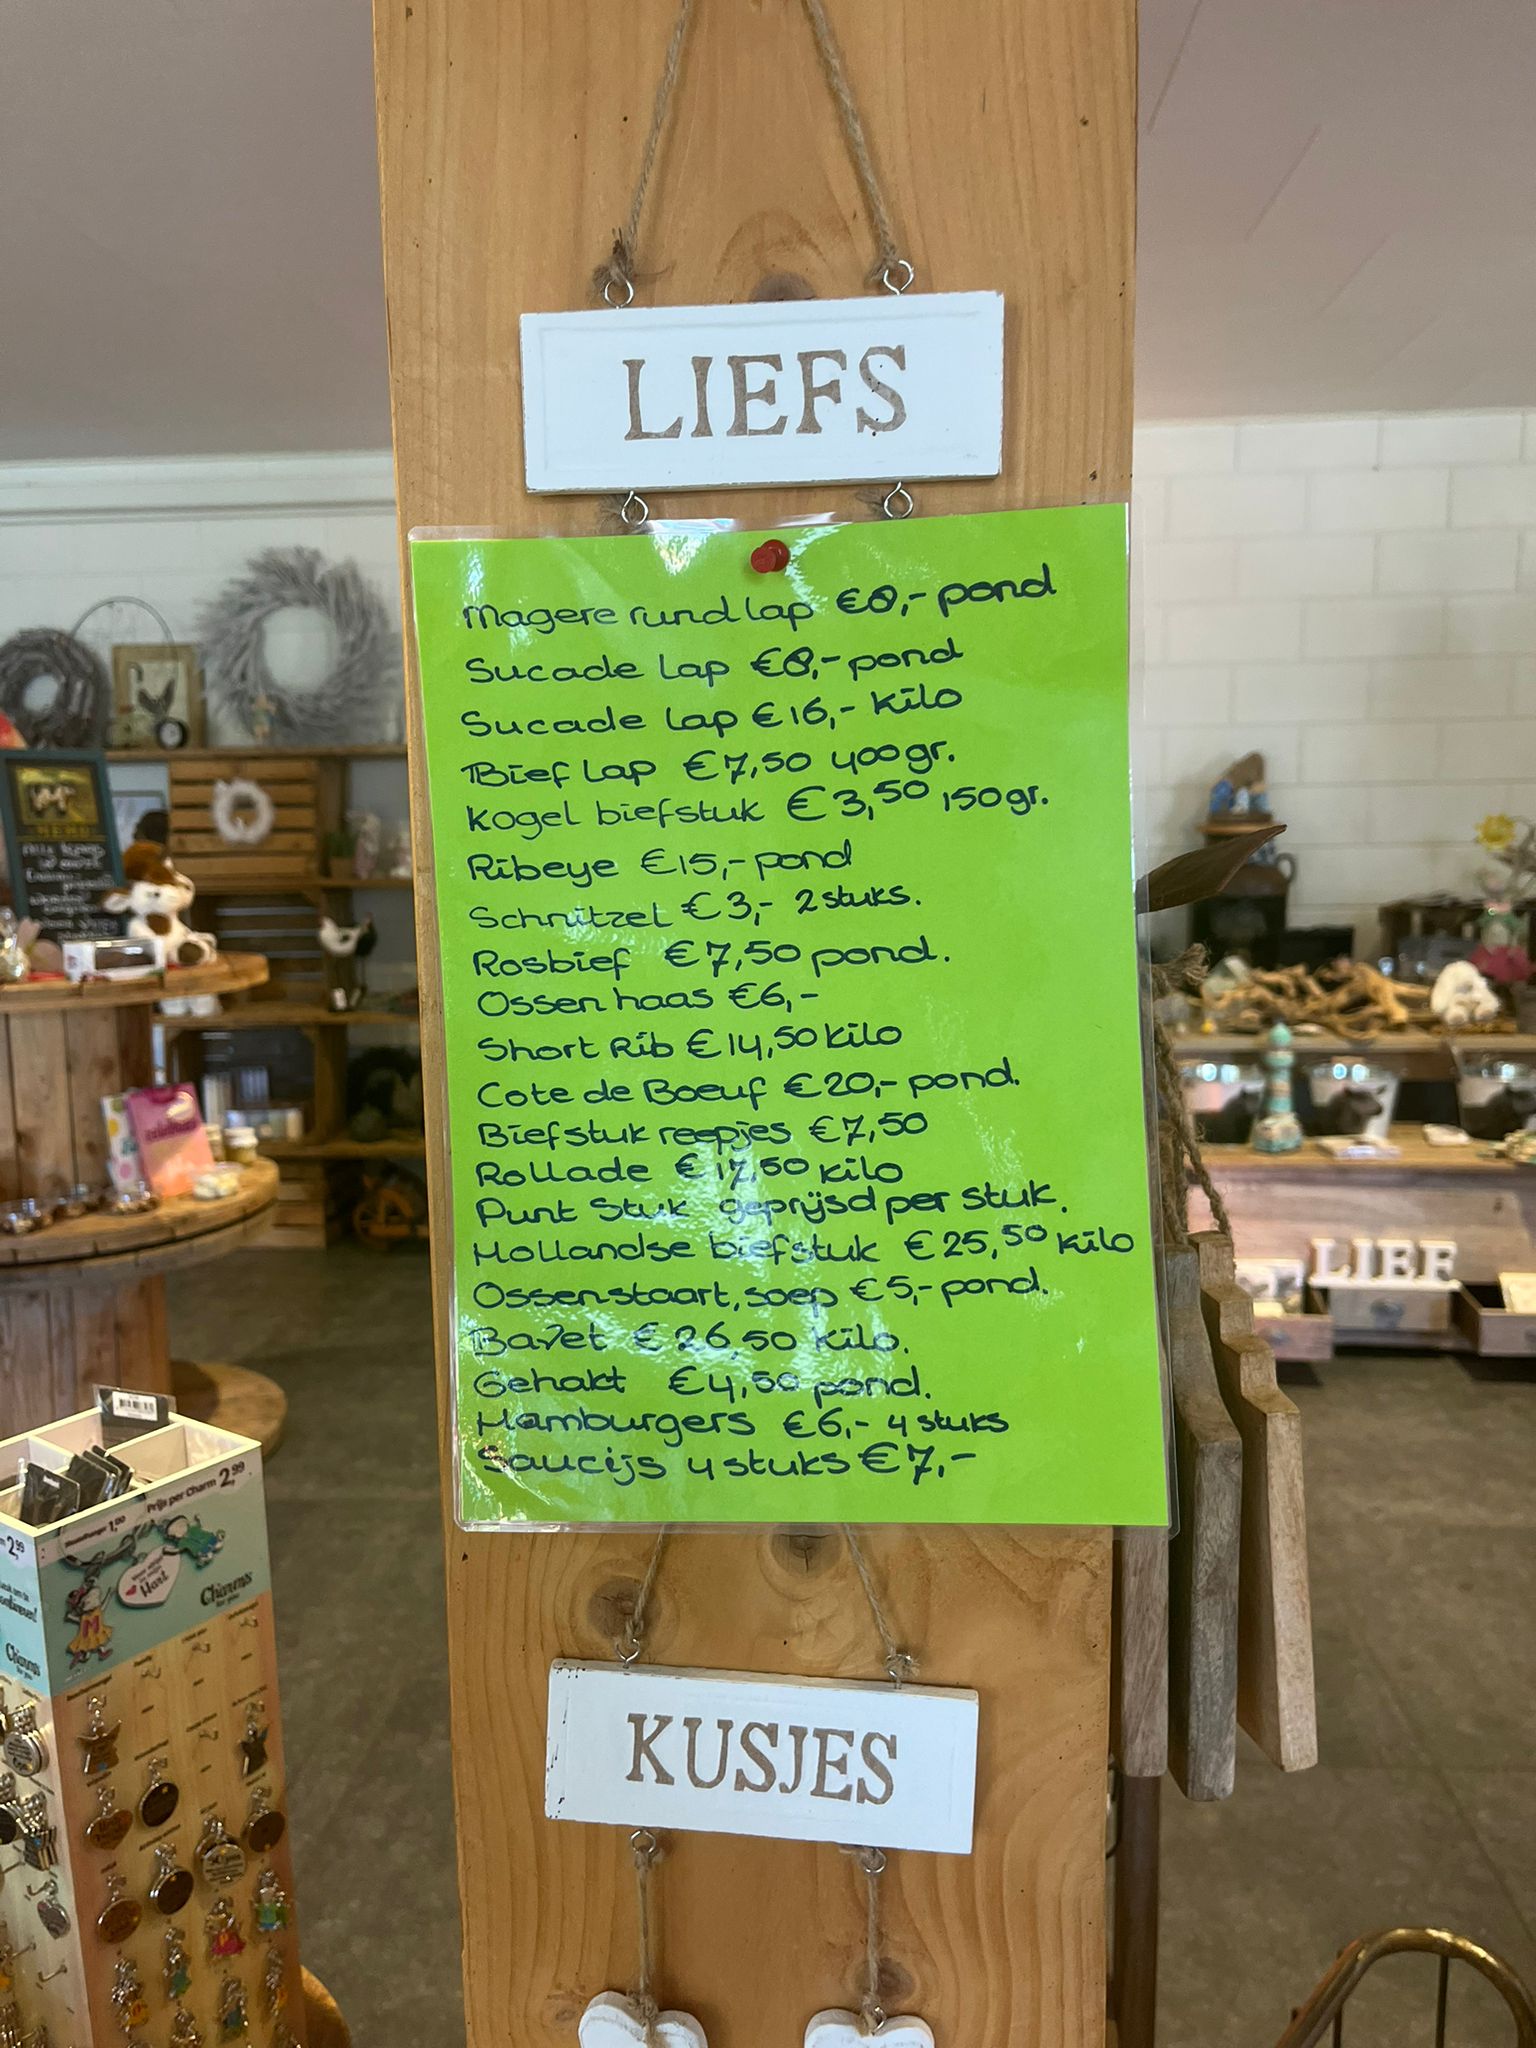 LIEFS
Magere rund lap €8,- pond
Sucade lap €8,- pond
Sucade lap €16,- kilo
Bief lap €7,50 400gr.
Kogel biefstuk €3,50 150gr.
Ribeye €15,- pond
Schnitzel €3,- 2 stuks.
Rosbief €7,50 pond.
Ossen haas €6,-
Short Rib €14,50 kilo
Cote de Boeuf €20,- pond.
Biefstuk reepjes €7,50
Rollade €17,50 kilo
Punt Stuk geprijsd per stuk.
Hollandse biefstuk €25,50 kilo
Ossenstaart, soep €5,- pond.
Bavet €26,50 kilo.
Gehakt €4,50 pond.
Hamburgers €6,- 4 stuks
Saucijs 4 stuks €7,-
KUSJES
LIEF
Prijs per Charm 2,99
1,50
Hart
Charms
for you
2,99
Charms